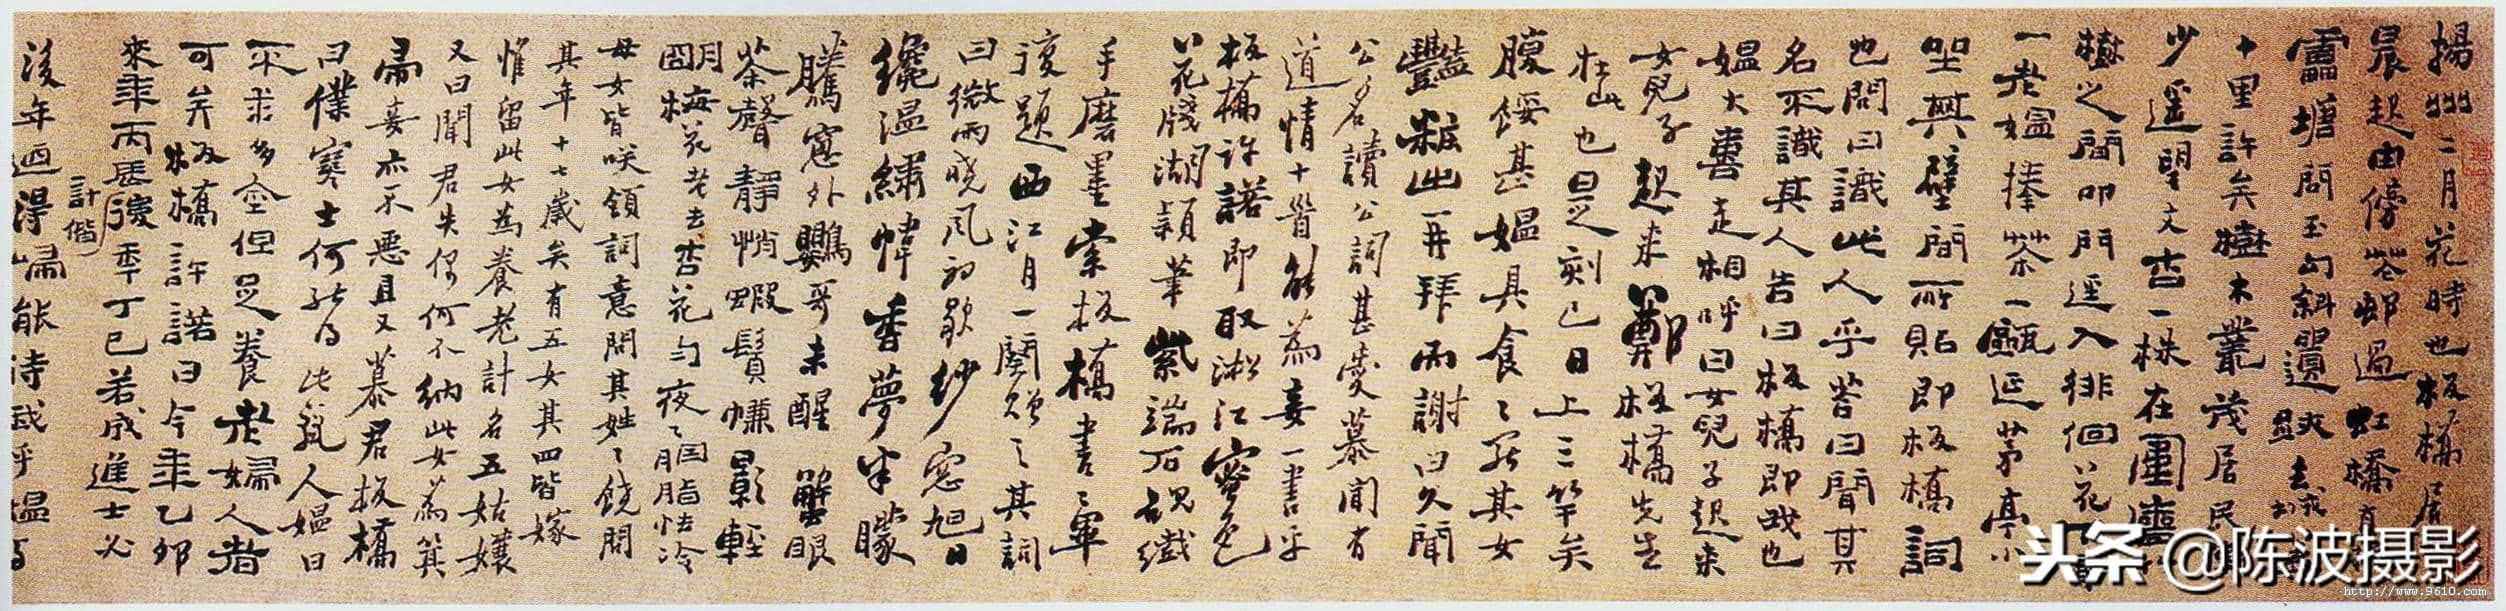 揚州二月花時也板橋居
晨起由傍花邨過虹橋直
雷塘問玉勾斜遺
十里許矣樹木叢茂居民
少遥望文杏一株在圍墻
樹之間叩門逕入徘徊花
一老媼捧茶一甌延茅亭小
坐其壁間所貼即板橋詞
也問曰識此人乎答曰聞其
名不識其人告曰板橋即我也
媼大喜走相呼曰女兒子起来
女兒子起来鄭板橋先生
在此也是刻已日上三竿矣
腹餒甚媼具食食罷其女
豔粧出再拜而謝曰久聞
公名讀公詞甚愛慕聞有
道情十首能為妾一書乎
板橋許諾即取淞江蜜色
花牋湖穎筆紫端石硯纖
手磨墨索板橋書書畢
復題西江月一闋贈之其詞
曰微雨曉風初歇紗窓旭日
纔温繡幃香夢半朦
騰窓外鸚哥未醒蟹眼
茶聲静悄蝦鬚幙影輕
明梅花老去杏花勻夜夜胭脂怯冷
母女皆咲領詞意問其姓姓饒問
其年十七歲矣有五女其四皆嫁
惟留此女為養老計名五姑孃
又曰聞君失偶何不納此女為箕
帚妾亦不惡且又慕君板橋
曰僕寒士何能得此麗人媼曰
不求多金但足養老婦人者
可矣板橋許諾曰今年乙卯
来年丙辰計偕後年丁巳若成進士必
後年廼得歸能待我乎媼
头条@陈波摄影
http://www.9610.com